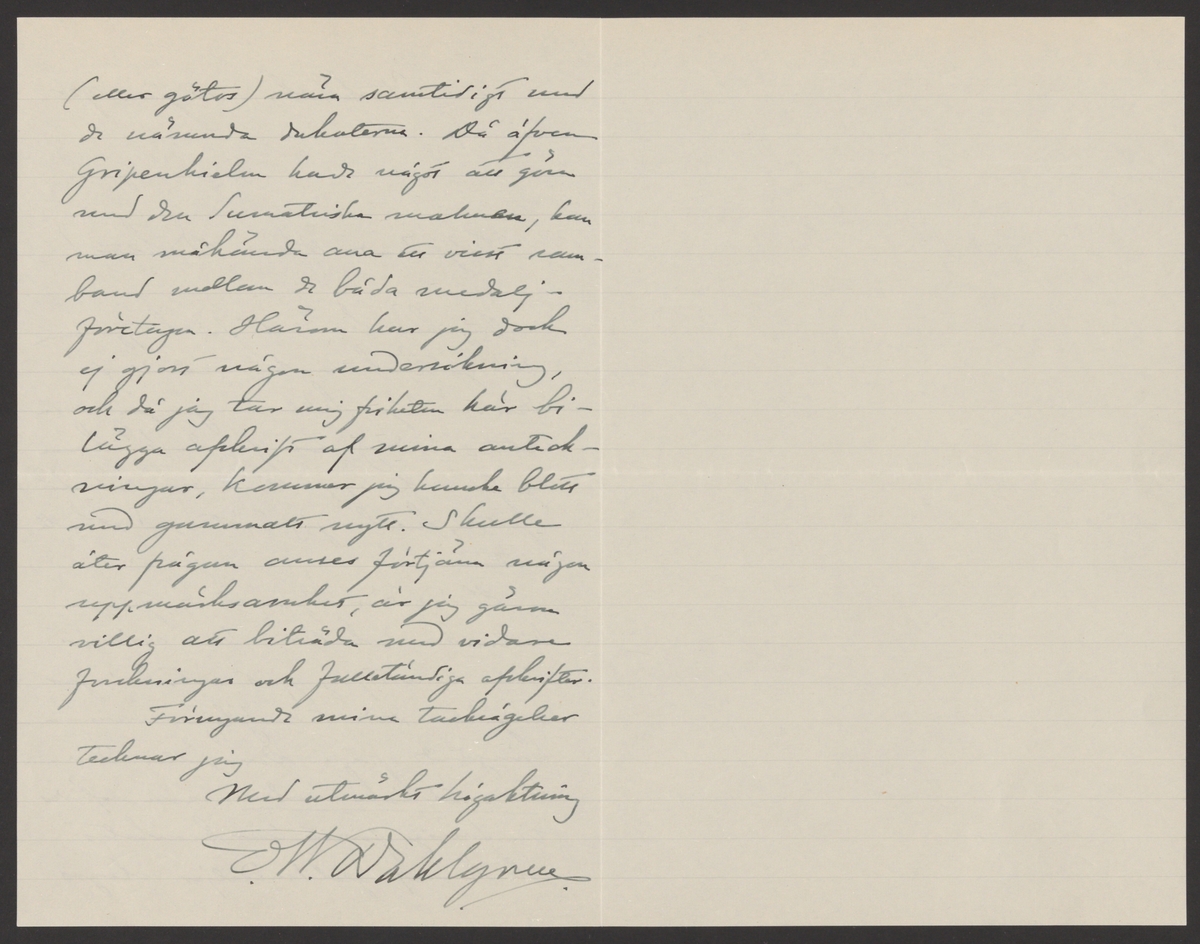 (eller götos) nära samtidigt med
de nämnda dukaterna. Då äfven
Gripenhielm hade något att göra
med den Sumatriska malmen, kan
man måhända ana ett visst sam-
band mellan de båda medalj-
företagen. Härom har jag dock
ej gjort någon undersökning,
och då jag tar mig friheten här bi-
lägga afskrift af mina anteck-
ningar, kommer jag kanske blott
med gammalt nytt. Skulle
åter frågan anses förtjäna någon
uppmärksamhet, är jag gärna
villig att biträda med vidare
forskningar och fullständiga afskrifter.
Förnyande mina tacksägelser
tecknar jag
Med utmärkt högaktning
E.W. Dahlgren.